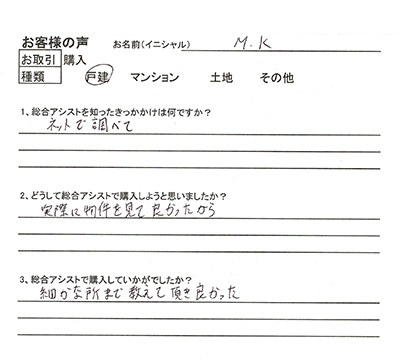 お客様の声 お名前(イニシャル) M.K
お取引 購入
種類 戸建 マンション 土地 その他
1、総合アシストを知ったきっかけは何ですか?
ネットで調べて
2、どうして総合アシストで購入しようと思いましたか?
実際に物件を見て良かったから
3、総合アシストで購入していかがでしたか?
細かな所まで教えて頂き良かった